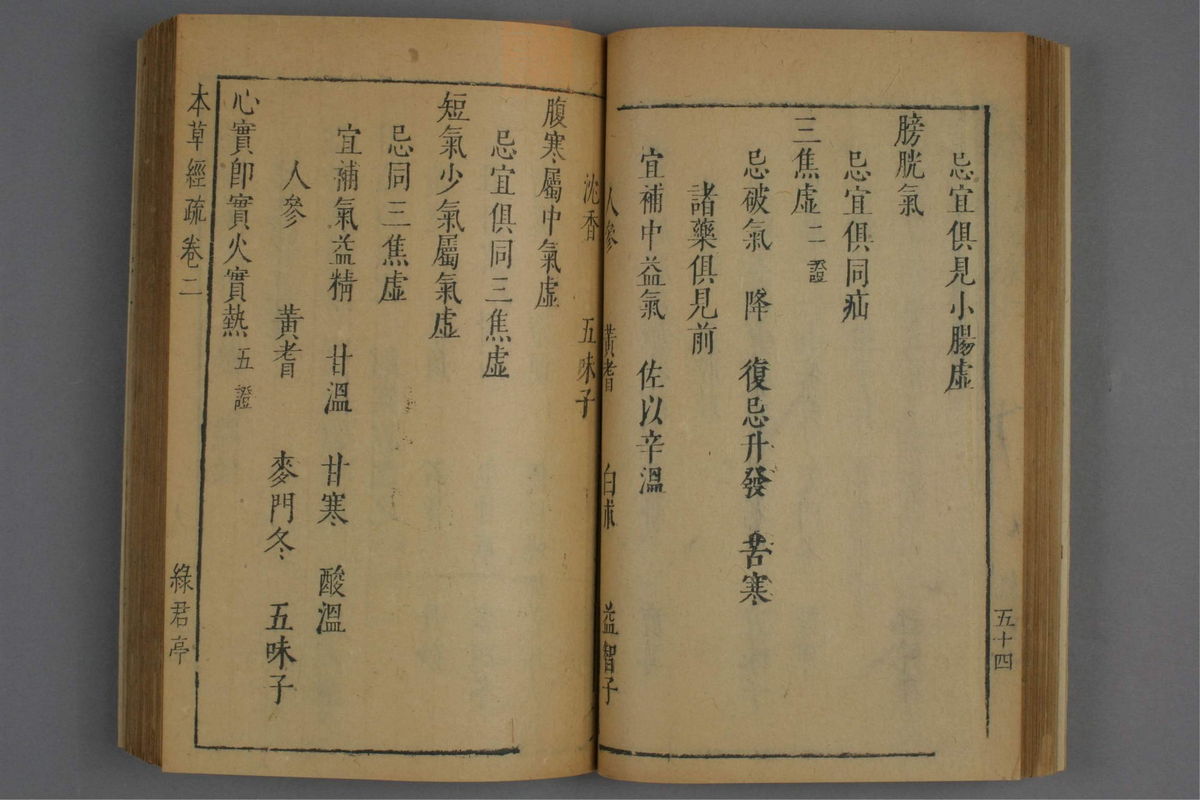 忌宜俱見小腸虛
膀胱氣
忌宜俱同疝
三焦虛二證
忌破氣 降 復忌升發 苦寒
諸藥俱見前
宜補中益氣 佐以辛溫
人參 黃耆 白朮 益智子
五十四
沈香 五味子
腹寒屬中氣虛
忌宜俱同三焦虛
短氣少氣屬氣虛
忌同三焦虛
宜補氣益精 甘溫 甘寒 酸溫
人參 黃耆 麥門冬 五味子
心實卽實火實熱五證
本草經疏卷二 綠君亭